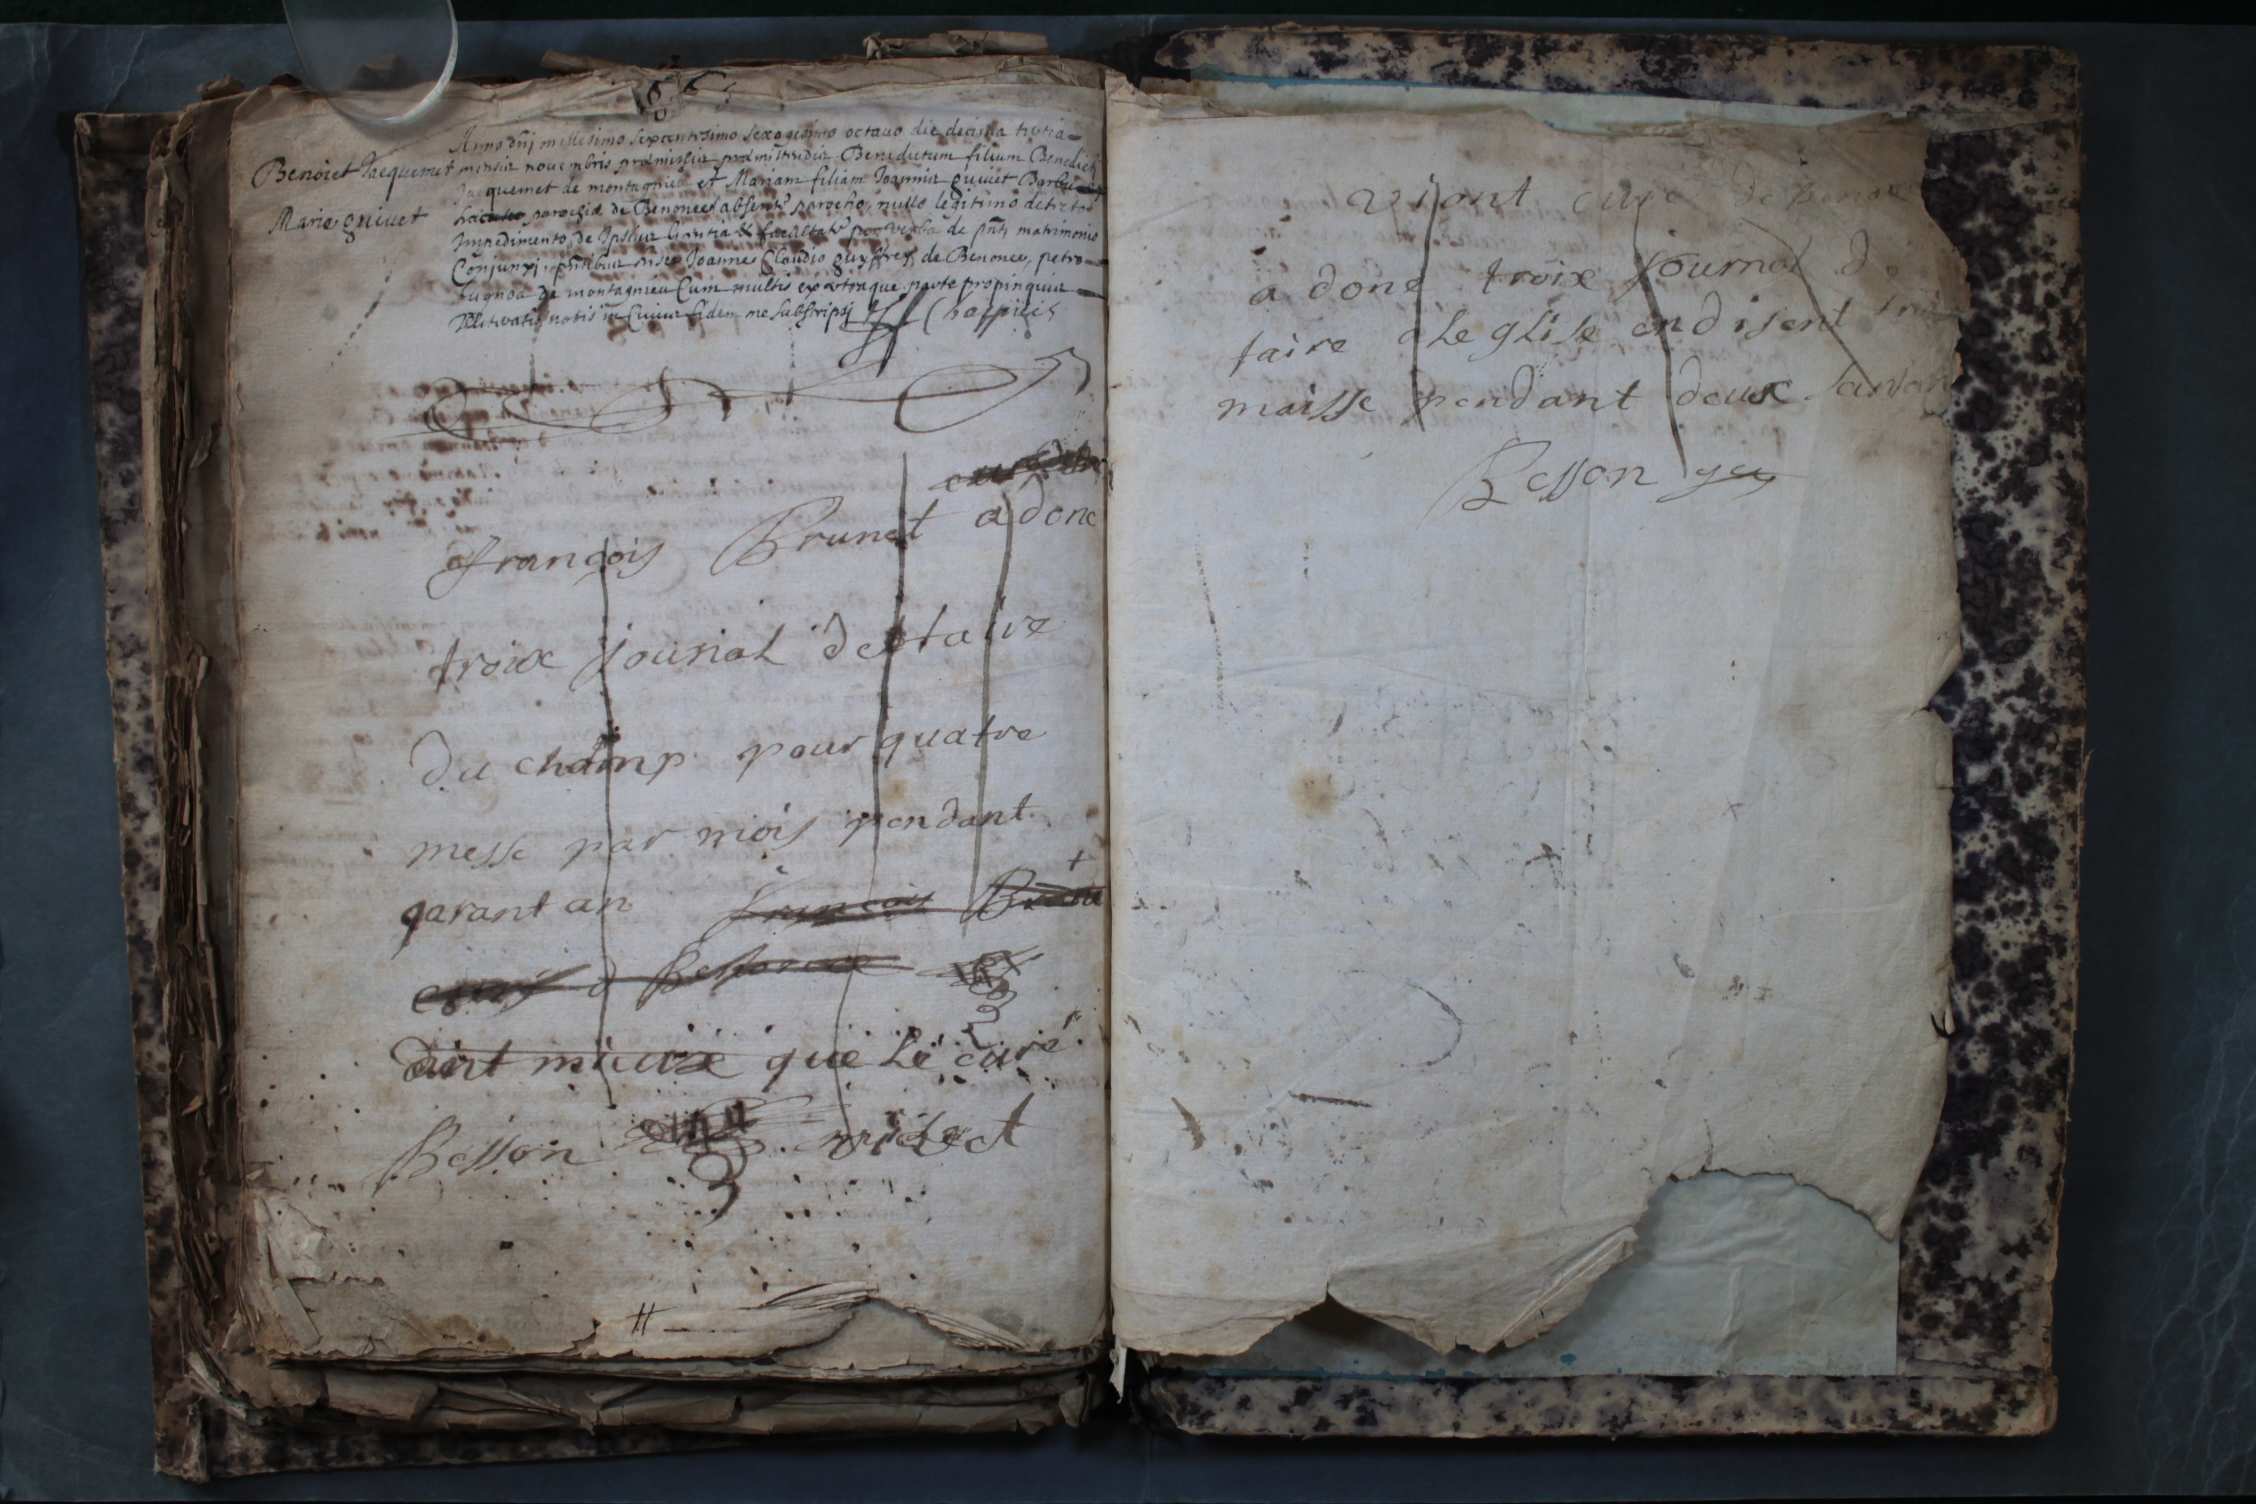 Anno dñj millesimo sexcentesimo sexagesimo octavo die decima tertia
Benoict Jacquemet mensis novembris præmissis præmittendis Benedictum filium Benedicti
Jacquemet de montagnieu et Mariam filiam Joannis guivet Barbi
Marie guivet
parochiæ de Benonces absente parocho, nullo legitimo detecto
Impedimento, de Ipsius licentia & facultate de pñti matrimonio
Conjunxi, pñtibus Joanne Claudio guyffrey de Benonces, petro
fugnon de montagnieu Cum multis ex utraque parte propinquis
Illiteratis notis in Cuius fidem me subscripsi Charpineis
françois Brunet a done
troix journal de taire
du champ pour quatre
messe par mois pendant
qarant an françois Brune
a Bessonace
dirt mieuxe que Le curé
Besson
viont curé de Benon
a done troix journal de
taire a Leglise en disent troi
maisse pendant deux
Besson